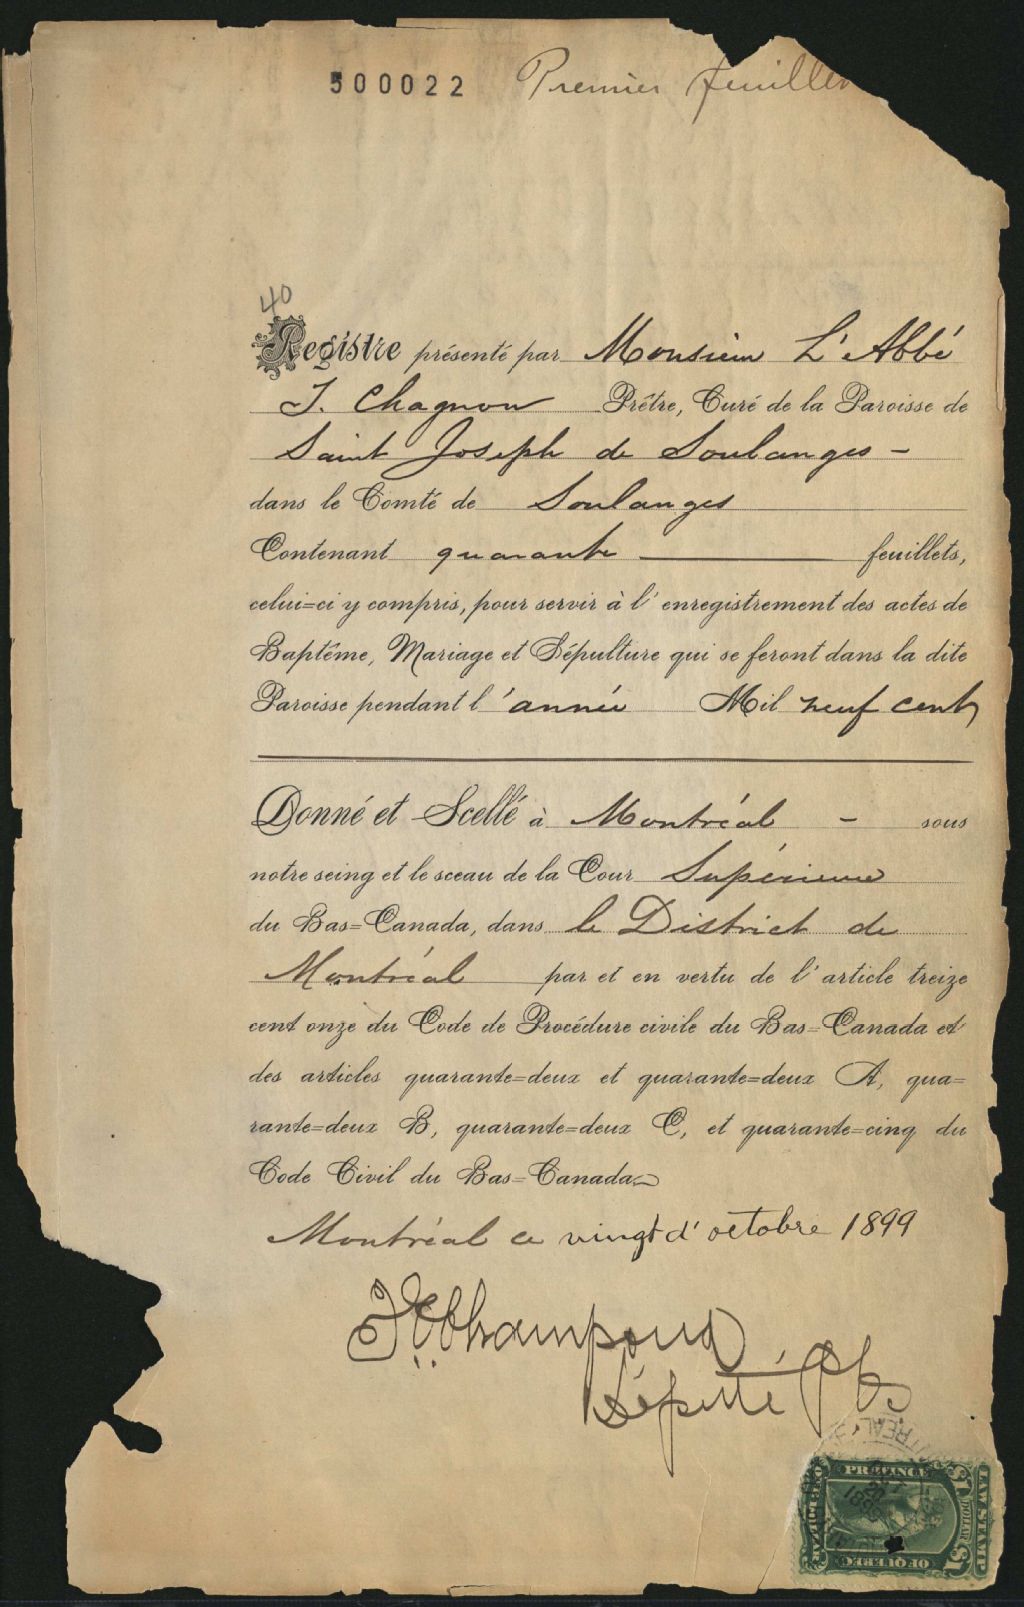 500022 Premier feuillet
40
Registre présenté par Monsieur L'Abbé
J. Chagnon Prêtre, Curé de la Paroisse de
Saint Joseph de Soulanges -
dans le Comté de Soulanges
Contenant quarante feuillets,
celui=ci y compris, pour servir à l'enregistrement des actes de
Baptême, Mariage et Sépulture qui se feront dans la dite
Paroisse pendant l'année Mil neuf cent
Donné et Scellé à Montréal - sous
notre seing et le sceau de la Cour Supérieure
du Bas=Canada, dans le District de
Montréal par et en vertu de l'article treize
cent onze du Code de Procédure civile du Bas=Canada et
des articles quarante=deux et quarante=deux A, qua=
rante=deux B, quarante=deux C, et quarante=cinq du
Code Civil du Bas=Canada
Montréal ce vingt d'octobre 1899
Député P
PROVINCE
OF QUEBEC
LAW STAMP
$1 DOLLAR $1